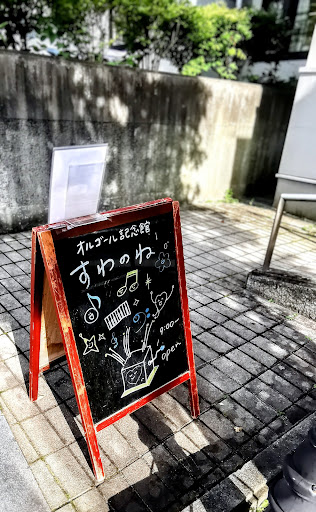 オルゴール記念館
すわのね
9:00〜
open